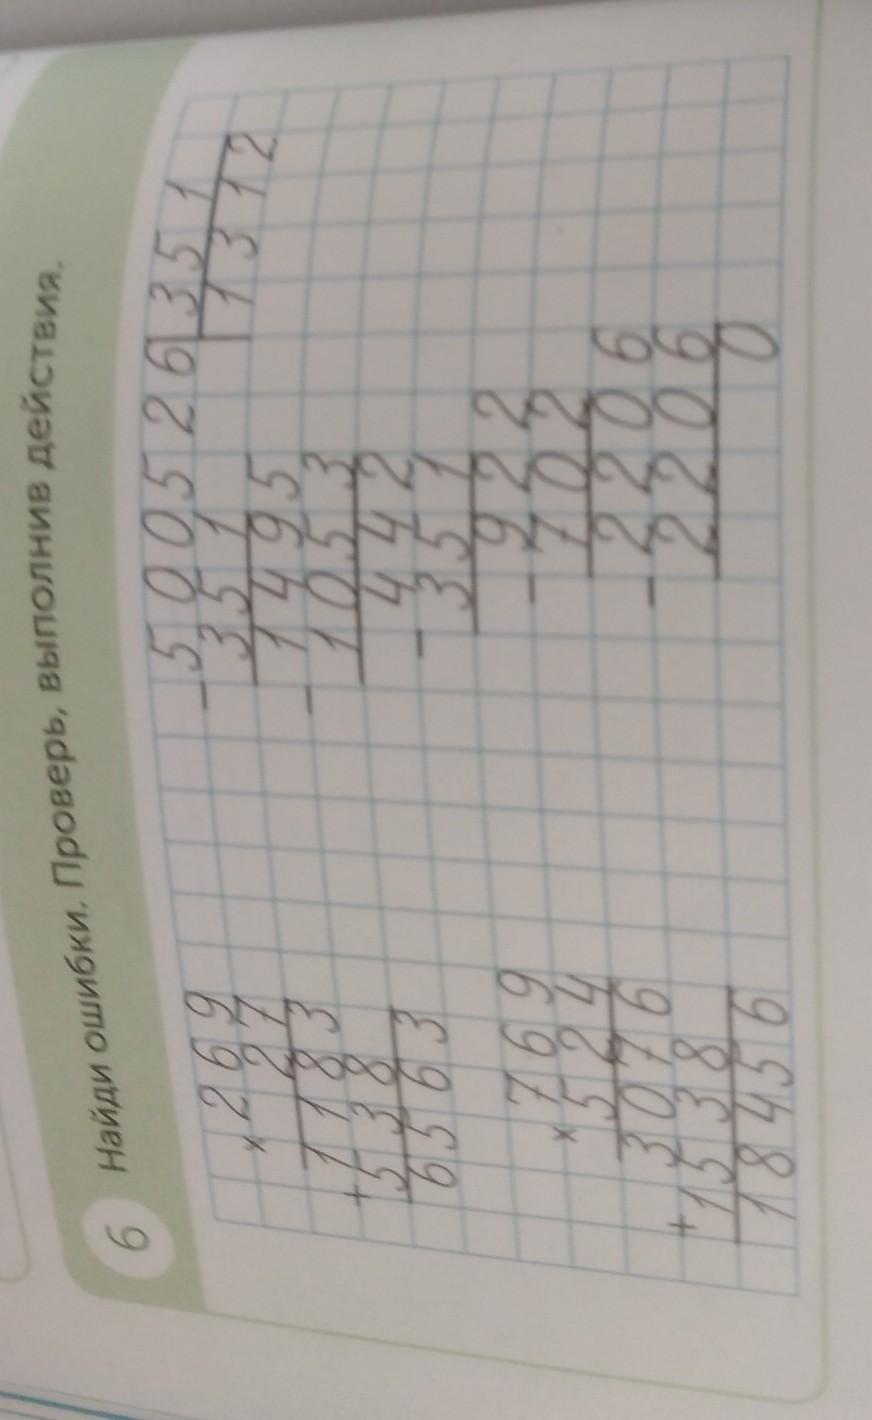 6 Найди ошибки. Проверь, выполнив действия.
× 269
27
1183
+ 538
6563
× 769
524
3076
+ 1538
18456
− 500526 | 351
351 | 1312
− 1495
1053
− 442
351
− 922
702
− 2206
2206
0